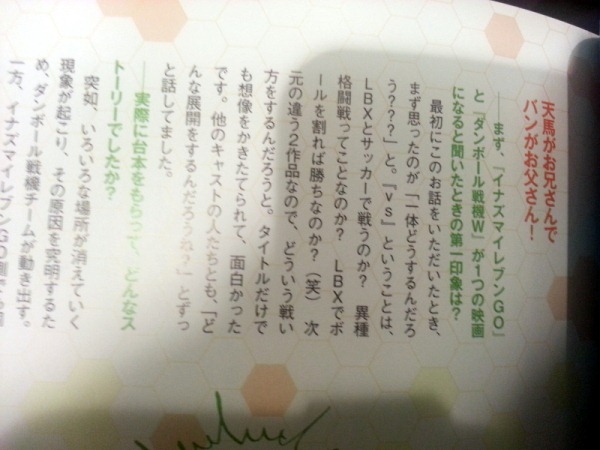 天馬がお兄さんで
バンがお父さん！
――まず、『イナズマイレブンGO』
と『ダンボール戦機W』が1つの映画
になると聞いたときの第一印象は？
最初にこのお話をいただいたとき、
まず思ったのが「一体どうするんだろ
う？？？」と。『vs』ということは、
LBXとサッカーで戦うのか？　異種
格闘戦ってことなのか？　LBXでボ
ールを割れば勝ちなのか？（笑）　次
元の違う2作品なので、どういう戦い
方をするんだろうと。タイトルだけで
も想像をかきたてられて、面白かった
です。他のキャストの人たちとも、「ど
んな展開をするんだろうね？」とずっ
と話してました。
――実際に台本をもらって、どんなス
トーリーでしたか？
突如、いろいろな場所が消えていく
現象が起こり、その原因を究明するた
め、ダンボール戦機チームが動き出す。
一方、イナズマイレブンGO側でも